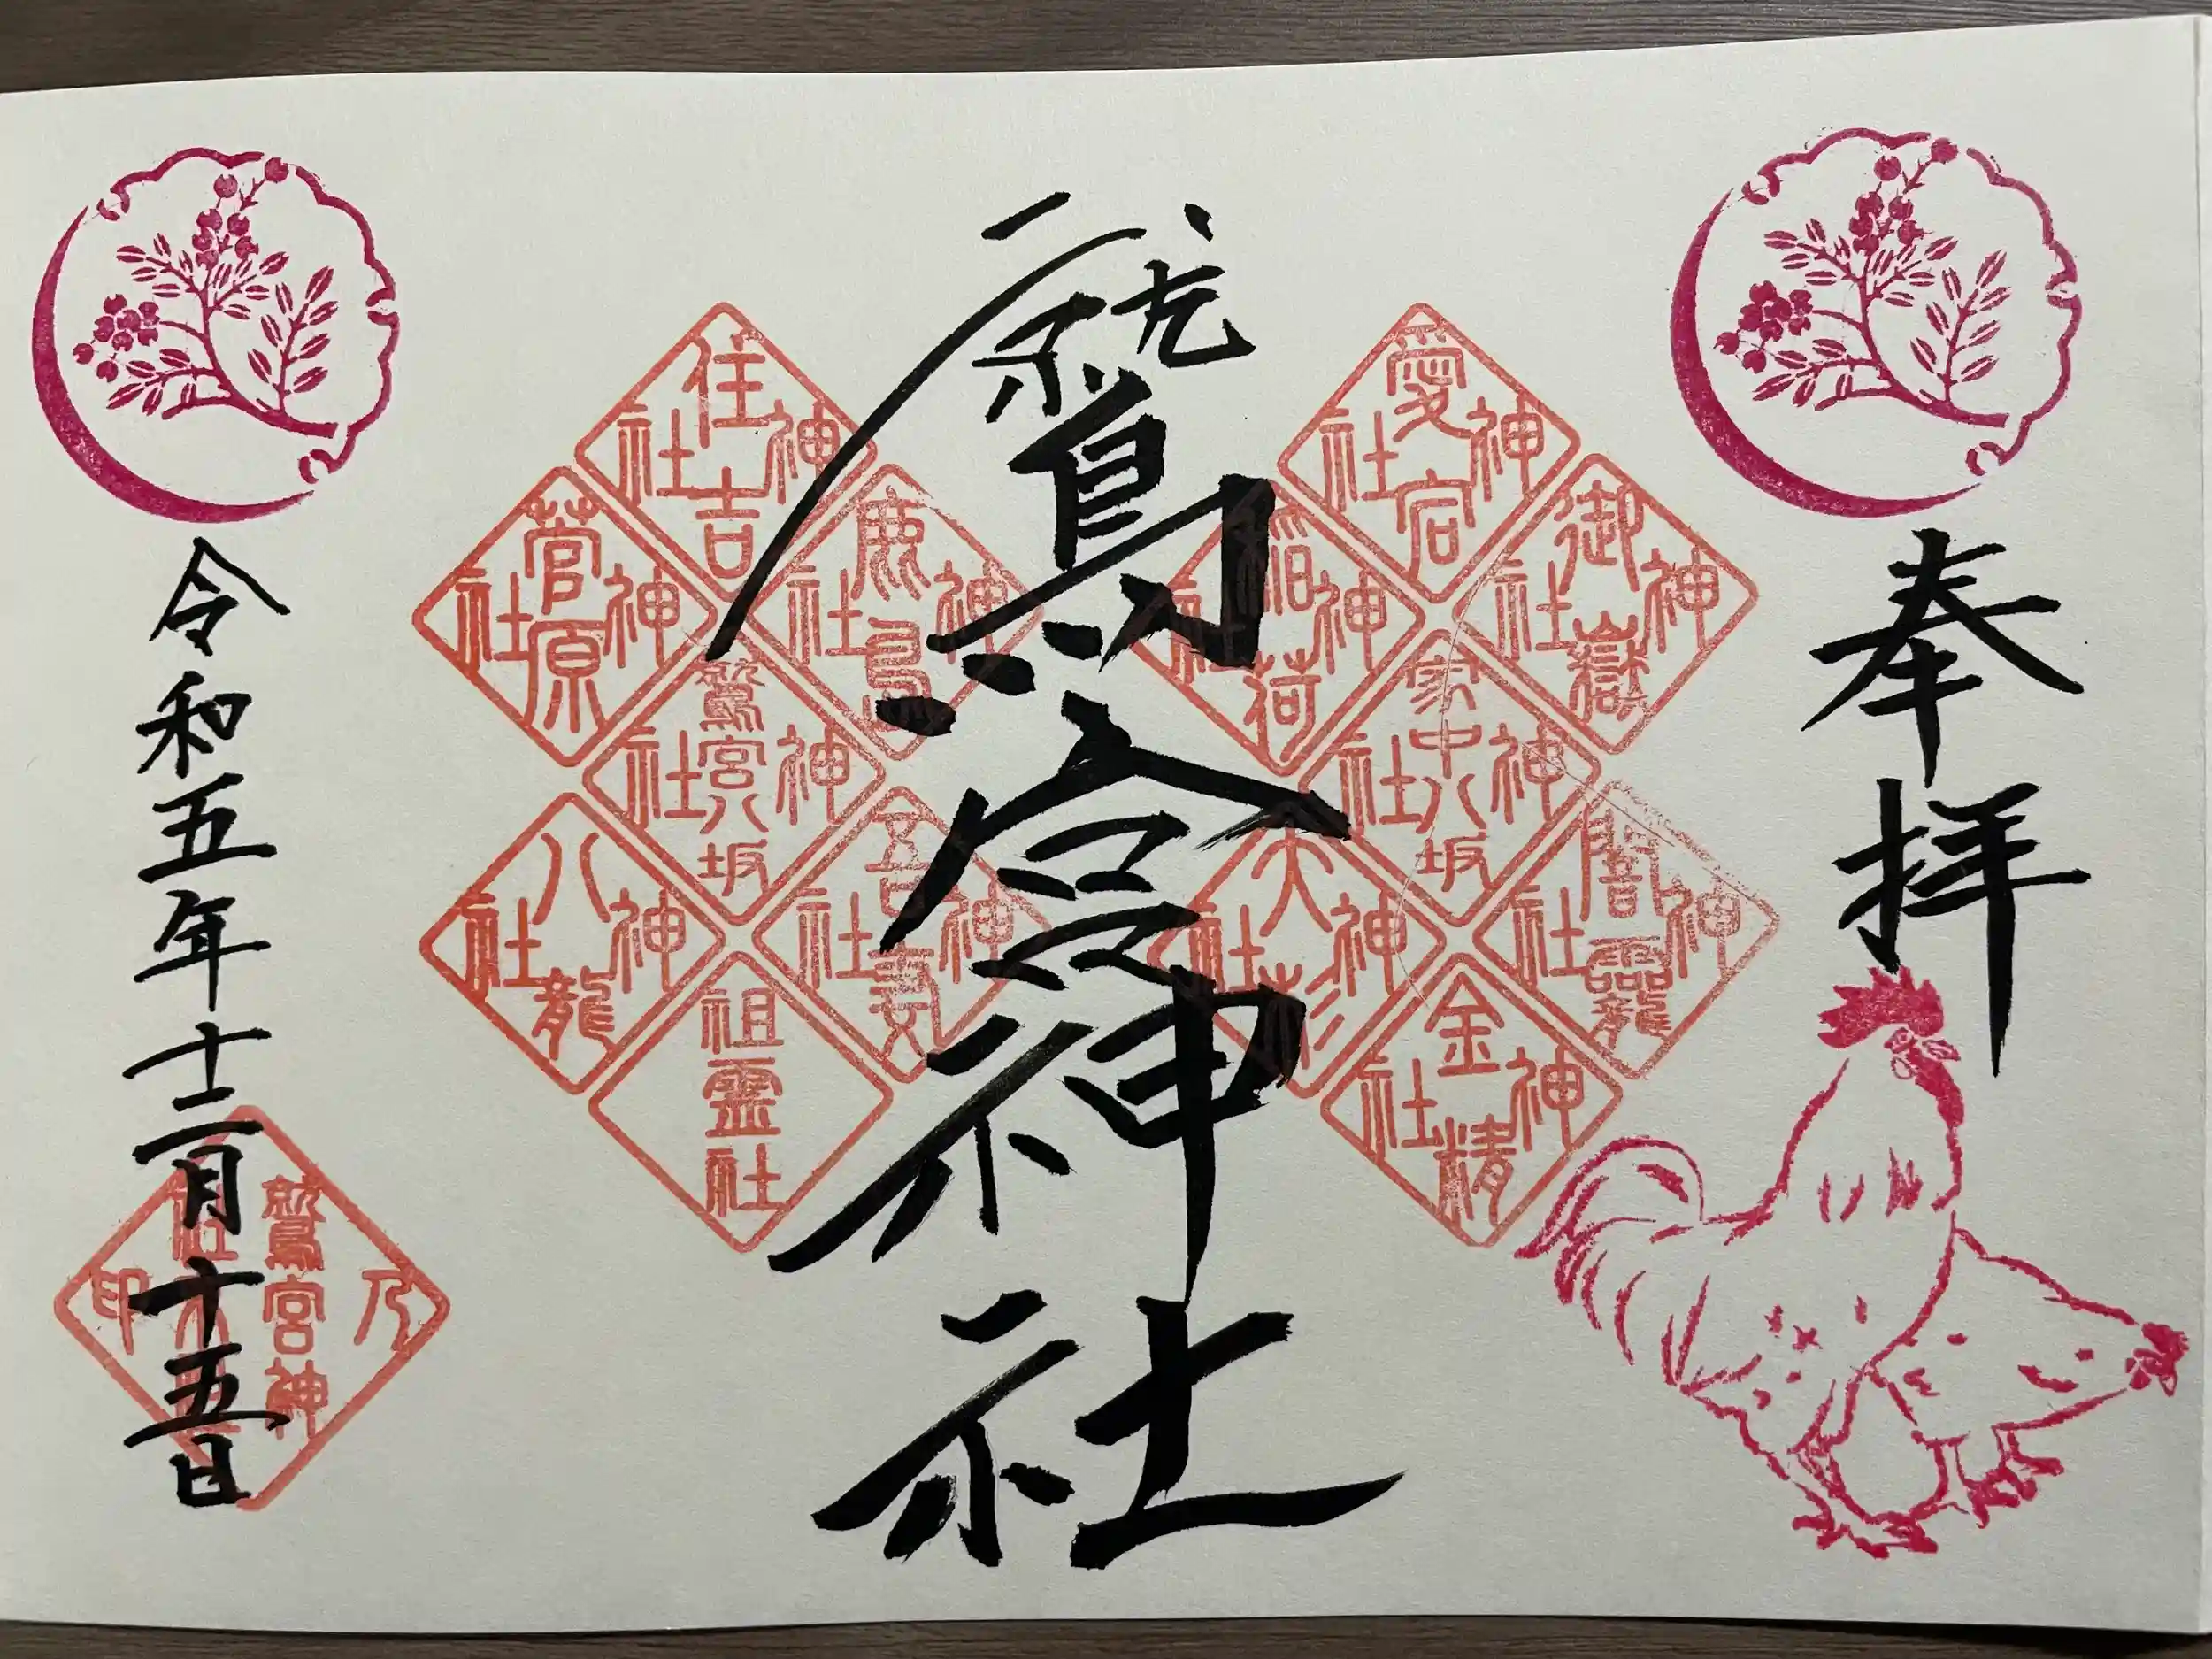 奉拝
鷲宮神社
令和五年十二月十五日
愛宕神社
御嶽神社
稲荷神社
家中八坂神社
闇龗神社
大杉神社
金精神社
住吉神社
鹿島神社
菅原神社
鷲宮八坂神社
吾妻神社
八龍神社
祖霊社
乃
鷲宮神
印